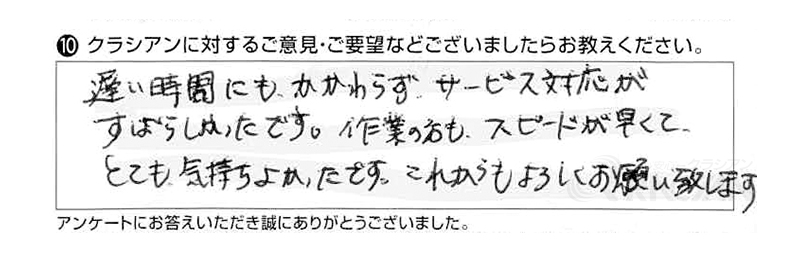 ⑩ クラシアンに対するご意見・ご要望などございましたらお教えください。
遅い時間にも、かかわらず、サービス対応が
すばらしかったです。作業の方も、スピードが早くて、
とても、気持ちよかったです。これからもよろしくお願い致します
アンケートにお答えいただき誠にありがとうございました。